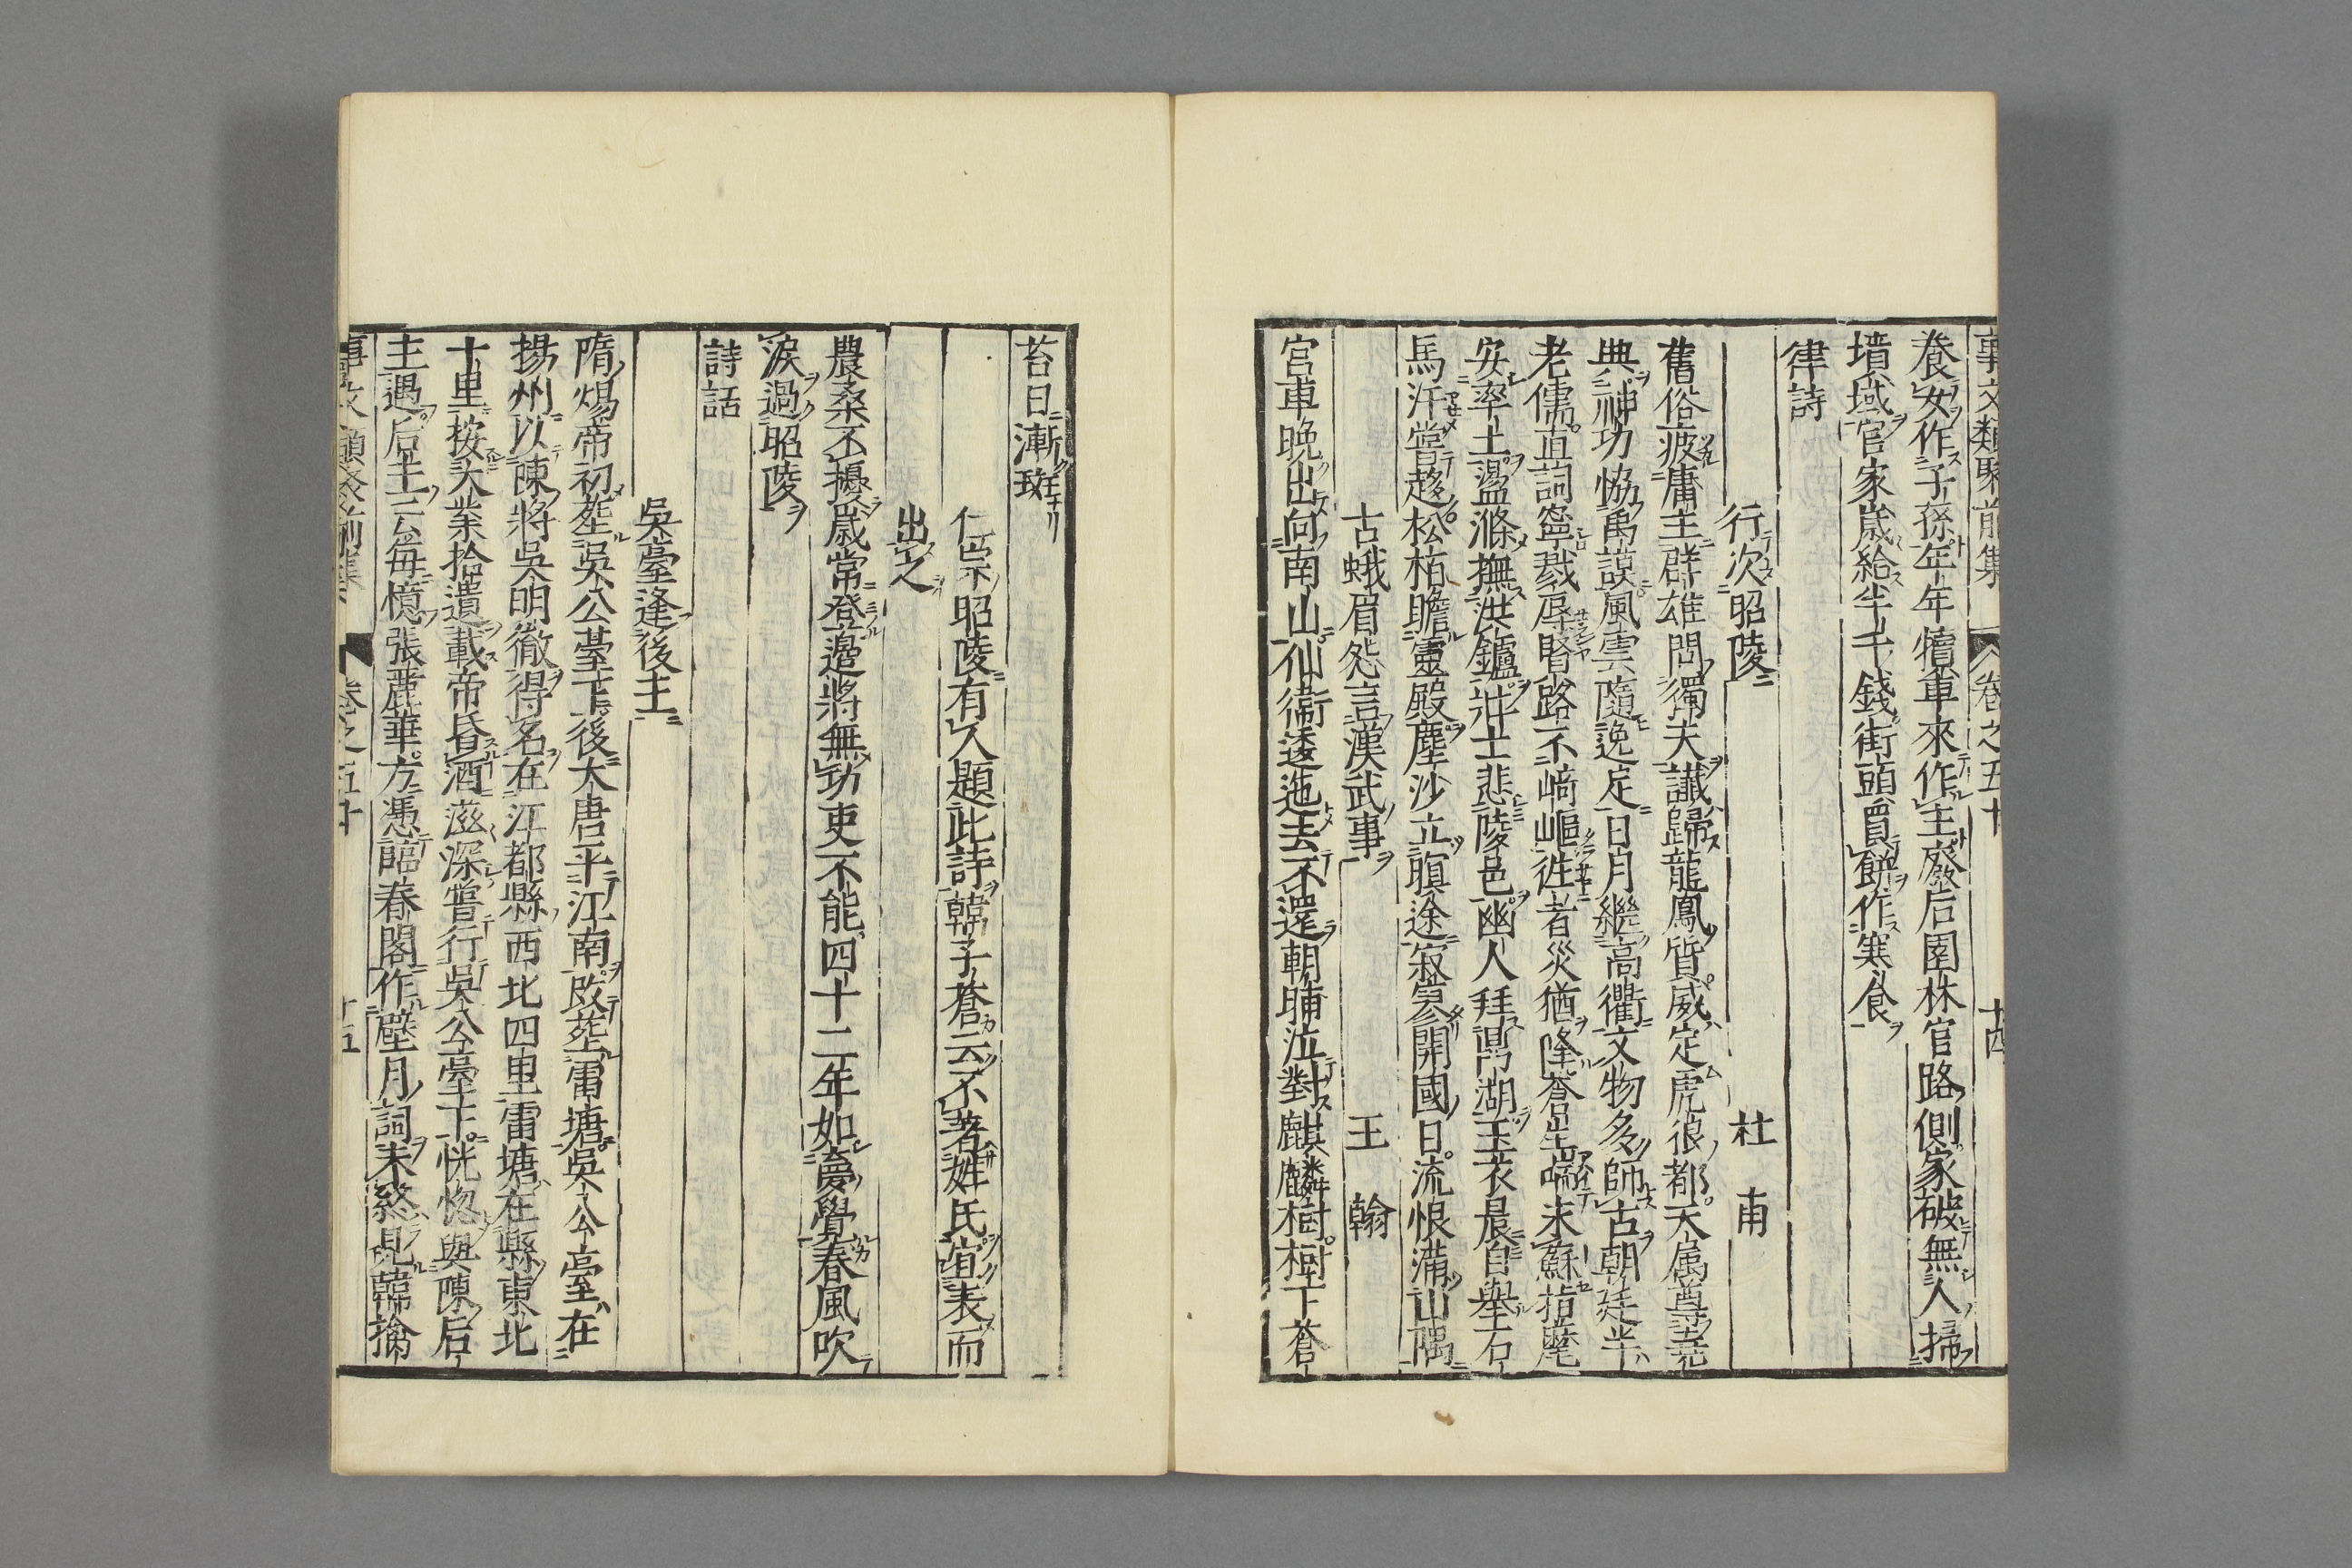 事文類聚前集 卷之五十 十四
養女作子孫年年犢車來作主廢后園林官路側家破無人掃
墳域官家歲給半千錢街頭買餅作寒食
律詩
行次昭陵 杜甫
舊俗疲庸主群雄問獨夫讖歸龍鳳質威定虎狼都天属尊堯
典神功恊禹謨風雲隨逸足日月繼高衢文物多師古朝廷半
老儒直詞寧戮辱賢路不崎嶇徃者災猶降蒼生喘未蘇指麾
安率土盪滌撫洪鑪壯士悲陵邑幽人拜鼎湖玉衣晨自舉石
馬汗嘗趍松栢瞻靈殿塵沙立暝途寂寥開國日流恨滿山隅
古蛾眉怨言漢武事 王翰
宮車晚出向南山仙衛逶迤去不還朝晡泣對麒麟樹樹下蒼
苔日漸斑
仁宗昭陵有人題此詩韓子蒼云不著姓氏宜表而
出之
農桑不擾歲常登邉將無功吏不能四十二年如夢覺春風吹
淚過昭陵
詩話
吳臺逢後主
隋煬帝初塟吳公臺下後大唐平江南改塟雷塘吳公臺在
揚州以陳將吳明徹得名在江都縣西北四里雷塘在縣東北
十里按大業拾遺載帝昏酒滋深嘗行吳公臺下恍惚與陳后
主遇后主云每憶張麗華方憑臨春閣作璧月詞未終見韓擒
事文類聚前集 卷之五十 十五